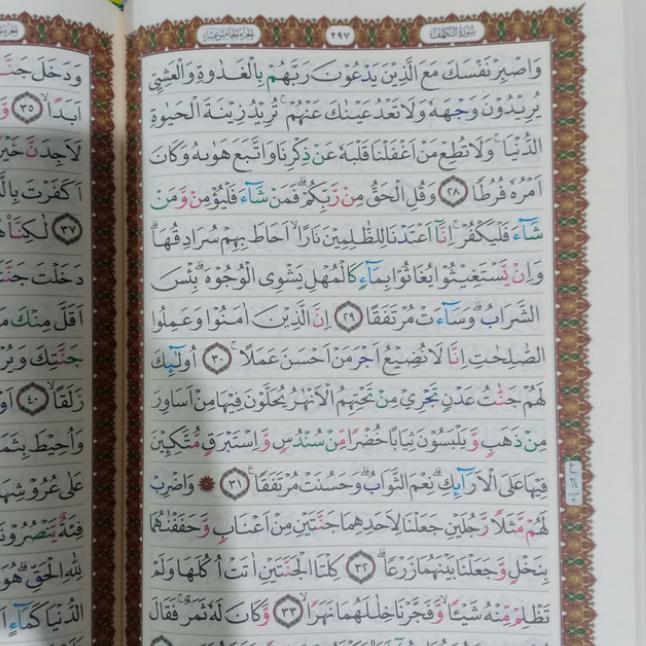 سُورَةُ الْكَهْفِ
٢٩٧
وَاصْبِرْ نَفْسَكَ مَعَ الَّذِينَ يَدْعُونَ رَبَّهُمْ بِالْغَدٰوةِ وَالْعَشِيِّ
يُرِيدُونَ وَجْهَهُ وَلَا تَعْدُ عَيْنَاكَ عَنْهُمْ تُرِيدُ زِينَةَ الْحَيٰوةِ
الدُّنْيَا وَلَا تُطِعْ مَنْ اَغْفَلْنَا قَلْبَهُ عَنْ ذِكْرِنَا وَاتَّبَعَ هَوٰىهُ وَكَانَ
اَمْرُهُ فُرُطًا ﴿٢٨﴾ وَقُلِ الْحَقُّ مِنْ رَّبِّكُمْ فَمَنْ شَآءَ فَلْيُؤْمِنْ وَّمَنْ
شَآءَ فَلْيَكْفُرْ اِنَّآ اَعْتَدْنَا لِلظّٰلِمِينَ نَارًا اَحَاطَ بِهِمْ سُرَادِقُهَا
وَاِنْ يَّسْتَغِيثُوا يُغَاثُوا بِمَآءٍ كَالْمُهْلِ يَشْوِى الْوُجُوهَ بِئْسَ
الشَّرَابُ وَسَآءَتْ مُرْتَفَقًا ﴿٢٩﴾ اِنَّ الَّذِينَ اٰمَنُوا وَعَمِلُوا
الصّٰلِحٰتِ اِنَّا لَا نُضِيعُ اَجْرَ مَنْ اَحْسَنَ عَمَلًا ﴿٣٠﴾ اُولٰٓئِكَ
لَهُمْ جَنّٰتُ عَدْنٍ تَجْرِيْ مِنْ تَحْتِهِمُ الْاَنْهٰرُ يُحَلَّوْنَ فِيهَا مِنْ اَسَاوِرَ
مِنْ ذَهَبٍ وَّيَلْبَسُونَ ثِيَابًا خُضْرًا مِّنْ سُنْدُسٍ وَّاِسْتَبْرَقٍ مُّتَّكِئِينَ
فِيهَا عَلَى الْاَرَآئِكِ نِعْمَ الثَّوَابُ وَحَسُنَتْ مُرْتَفَقًا ﴿٣١﴾ وَاضْرِبْ
لَهُمْ مَّثَلًا رَّجُلَيْنِ جَعَلْنَا لِاَحَدِهِمَا جَنَّتَيْنِ مِنْ اَعْنَابٍ وَّحَفَفْنٰهُمَا
بِنَخْلٍ وَّجَعَلْنَا بَيْنَهُمَا زَرْعًا ﴿٣٢﴾ كِلْتَا الْجَنَّتَيْنِ اٰتَتْ اُكُلَهَا وَلَمْ
تَظْلِمْ مِّنْهُ شَيْئًا وَّفَجَّرْنَا خِلٰلَهُمَا نَهَرًا ﴿٣٣﴾ وَّكَانَ لَهُ ثَمَرٌ فَقَالَ
وَدَخَلَ
اَبَدًا ﴿٣٥﴾
لَاَجِدَنَّ
اَكَفَرْتَ
﴿٣٧﴾ لٰكِنَّا
دَخَلْتَ
اَقَلَّ مِنْكَ
جَنَّتِكَ
زَلَقًا ﴿٤٠﴾
وَاُحِيطَ
عَلٰى عُرُوشِهَا
فِئَةٌ يَّنْصُرُونَهُ
لِلّٰهِ الْحَقِّ
الدُّنْيَا كَمَآءٍ